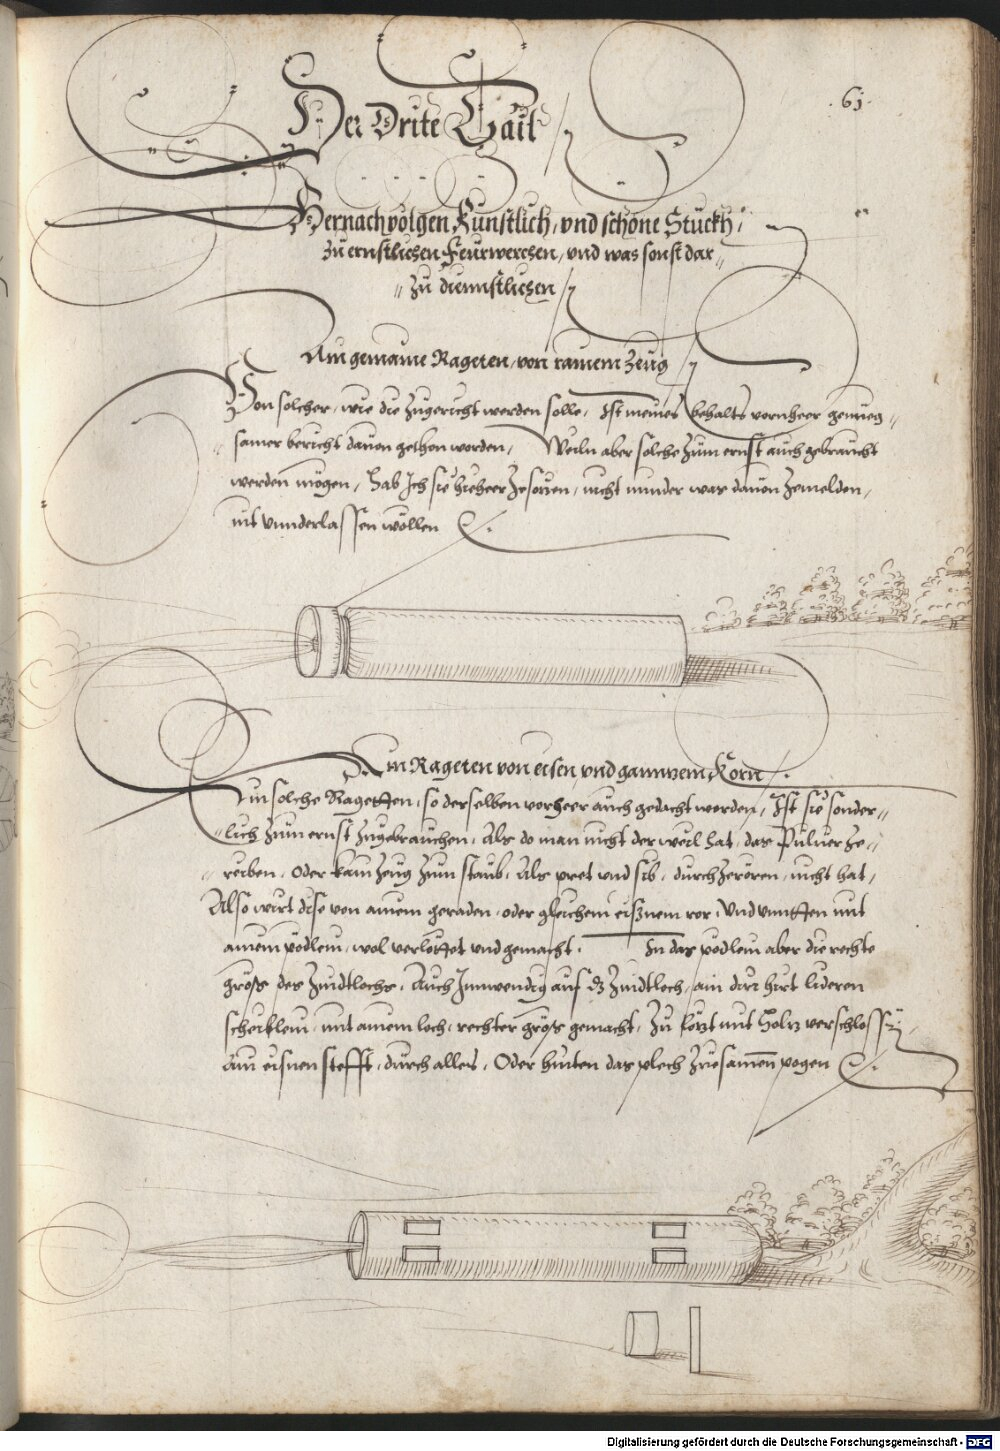 .61.
Der Drite Tail
Hernach volgen Kunstlich, und schöne Stückh,
zu ernstlichen Feürwerchen, und was sonst dar„
„ zu diennstlichen
Ain gemaine Rageten, von ramem Zeug
Von solcher, wie die zugericht werden solle, Ist meines behalts vornheer genueg„
„samer bericht davon gethon worden, Weiln aber solche zum ernst auch gebraucht
werden mögen, Hab Ich sie hieheer zesetzen, nicht minder was davon zemelden,
nit unnderlassen wöllen
Ain Rageten von eisen und gannzem Korn
Ain solche Ragetten, so derselben vorheer auch gedacht worden, Ist sie sonder„
„lich zum ernst zugebrauchen, Als do man nicht der weil hat, das Pulver ze„
„reiben, Oder kain zeug zum staub, Als pret und sib, durch zereren, nicht hat,
Also wirt dise von ainem geraden, oder gleichem eisznem ror, Und unntten mit
ainem pödlein, wol verlöttet und gemacht. In das pödlein aber die rechte
größ des Zündtlochs, Auch Innwendig auf dz Zündtloch, ain dirr hirt lideren
scheiblein, mit ainem loch, rechter größ gemacht, Zu letzt mit Holtz verschlossen,
Ain eisnen stefft, durch alles, Oder hinten das plech zuesamen pogen
Digitalisierung gefördert durch die Deutsche Forschungsgemeinschaft - DFG